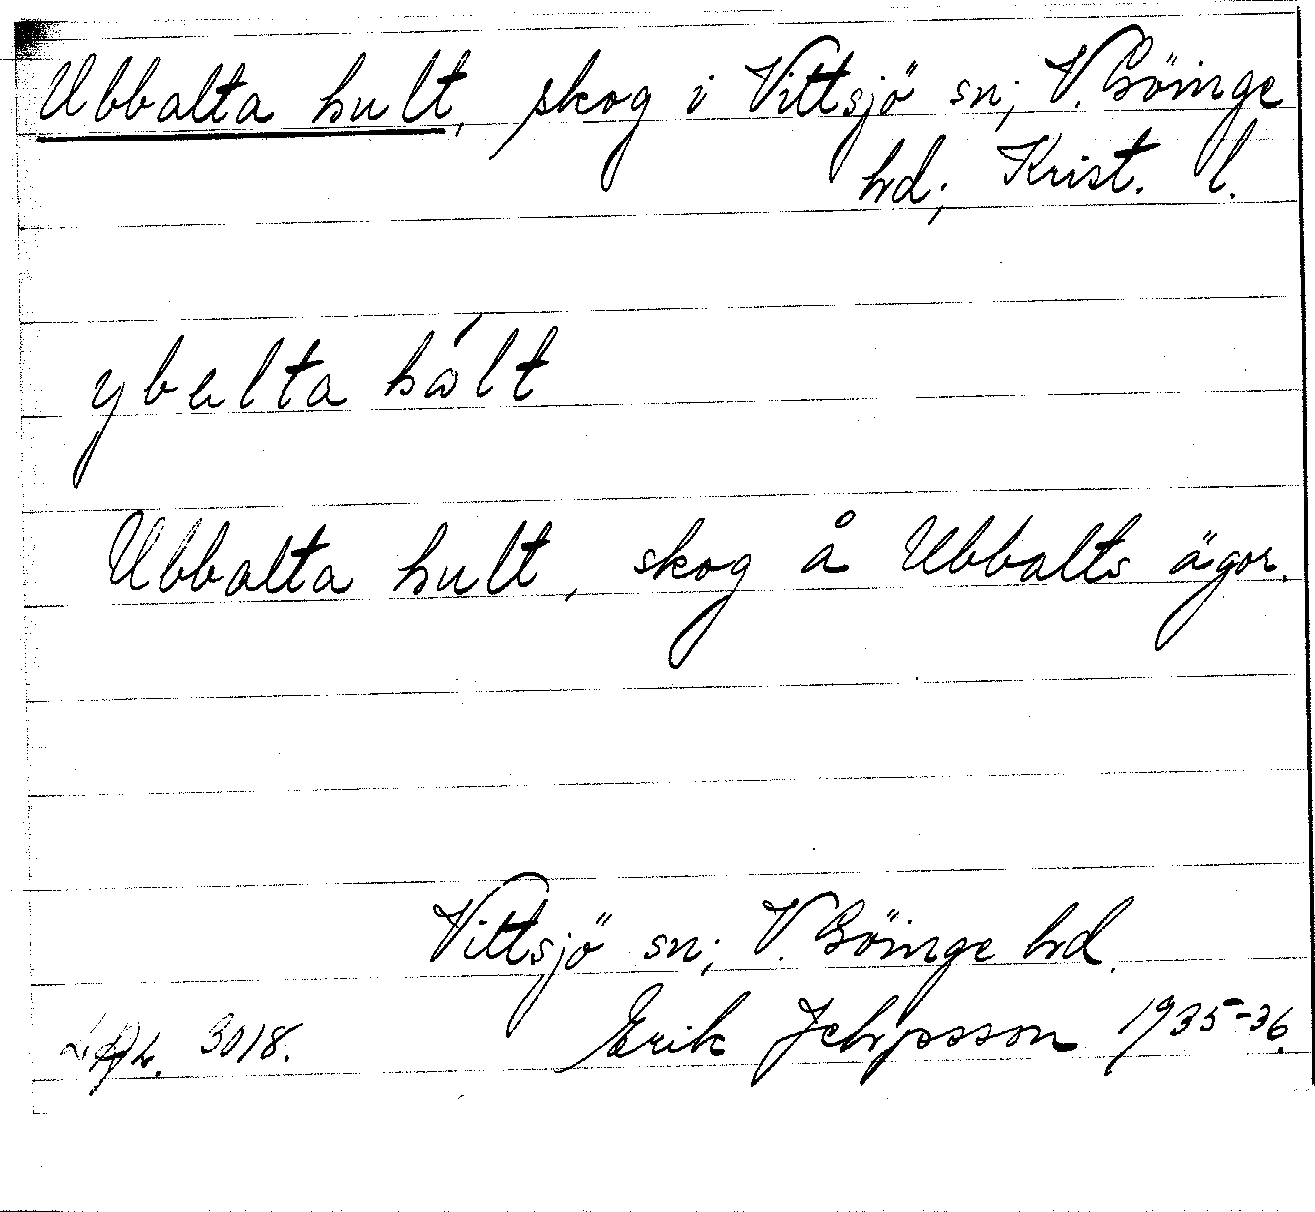 Ubbalta hult, skog i Vittsjö sn; V. Göinge
hrd; Krist. l.
ybalta hált
Ubbalta hult, skog å Ubbalts ägor.
Vittsjö sn; V. Göinge hrd.
3018. Erik Jehpsson 1935-36.